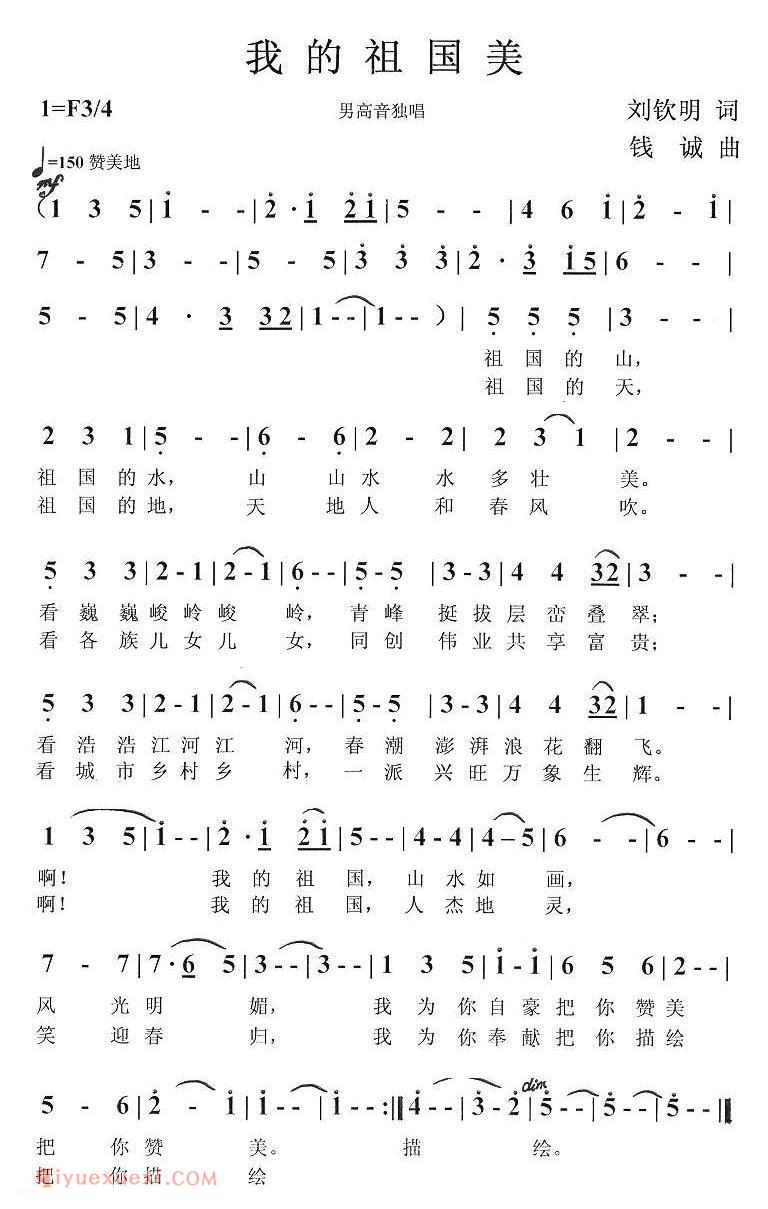 我的祖国美
1=F3/4 男高音独唱 刘钦明 词
钱 诚 曲
♩=150 赞美地
mf
(1 3 5|i - -|2·i 2i|5 - -|4 6 i|2 - i|
7 - 5|3 - -|5 - -|3 3 3|2·3 i5|6 - -|
5 - 5|4·3 32|1--|1--)|5 5 5|3 - -|
祖国的山,
祖国的天,
2 3 1|5 - -|6 - 6|2 - 2|5 - 5|2 3 1|2 - -|
祖国的水, 山 山水 水多壮 美。
祖国的地, 天 地人 和春风 吹。
5 3 3|2 - 1|2 - 1|6 - -|5 - 5|3 - 3|4 4 32|3 - -|
看巍巍峻岭峻 岭, 青峰 挺拔层峦叠翠;
看各族儿女儿 女, 同创 伟业共享富贵;
5 3 3|2 - 1|2 - 1|6 - -|5 - 5|3 - 3|4 4 32|1 - -|
看浩浩江河江 河, 春潮 澎湃浪花翻飞。
看城市乡村乡 村, 一派 兴旺万象生辉。
1 3 5|i - -|2·i 2i|5 - -|4 - 4|4 - 5|6 - -|6 - -|
啊! 我的祖国, 山水如 画,
啊! 我的祖国, 人杰地 灵,
7 - 7|7·6 5|3 - -|3 - -|1 3 5|i - i|6 5 6|5 - 5|
风 光明 媚, 我为你自豪把你赞美
笑 迎春 归, 我为你奉献把你描绘
dim
5 - 6|2 - i|i - -|i - -:||4 - -|3 - 2|5 - -|5 - -|5 - -||
把 你赞 美。 描 绘。
把 你描 绘
qiyuexuexi.com